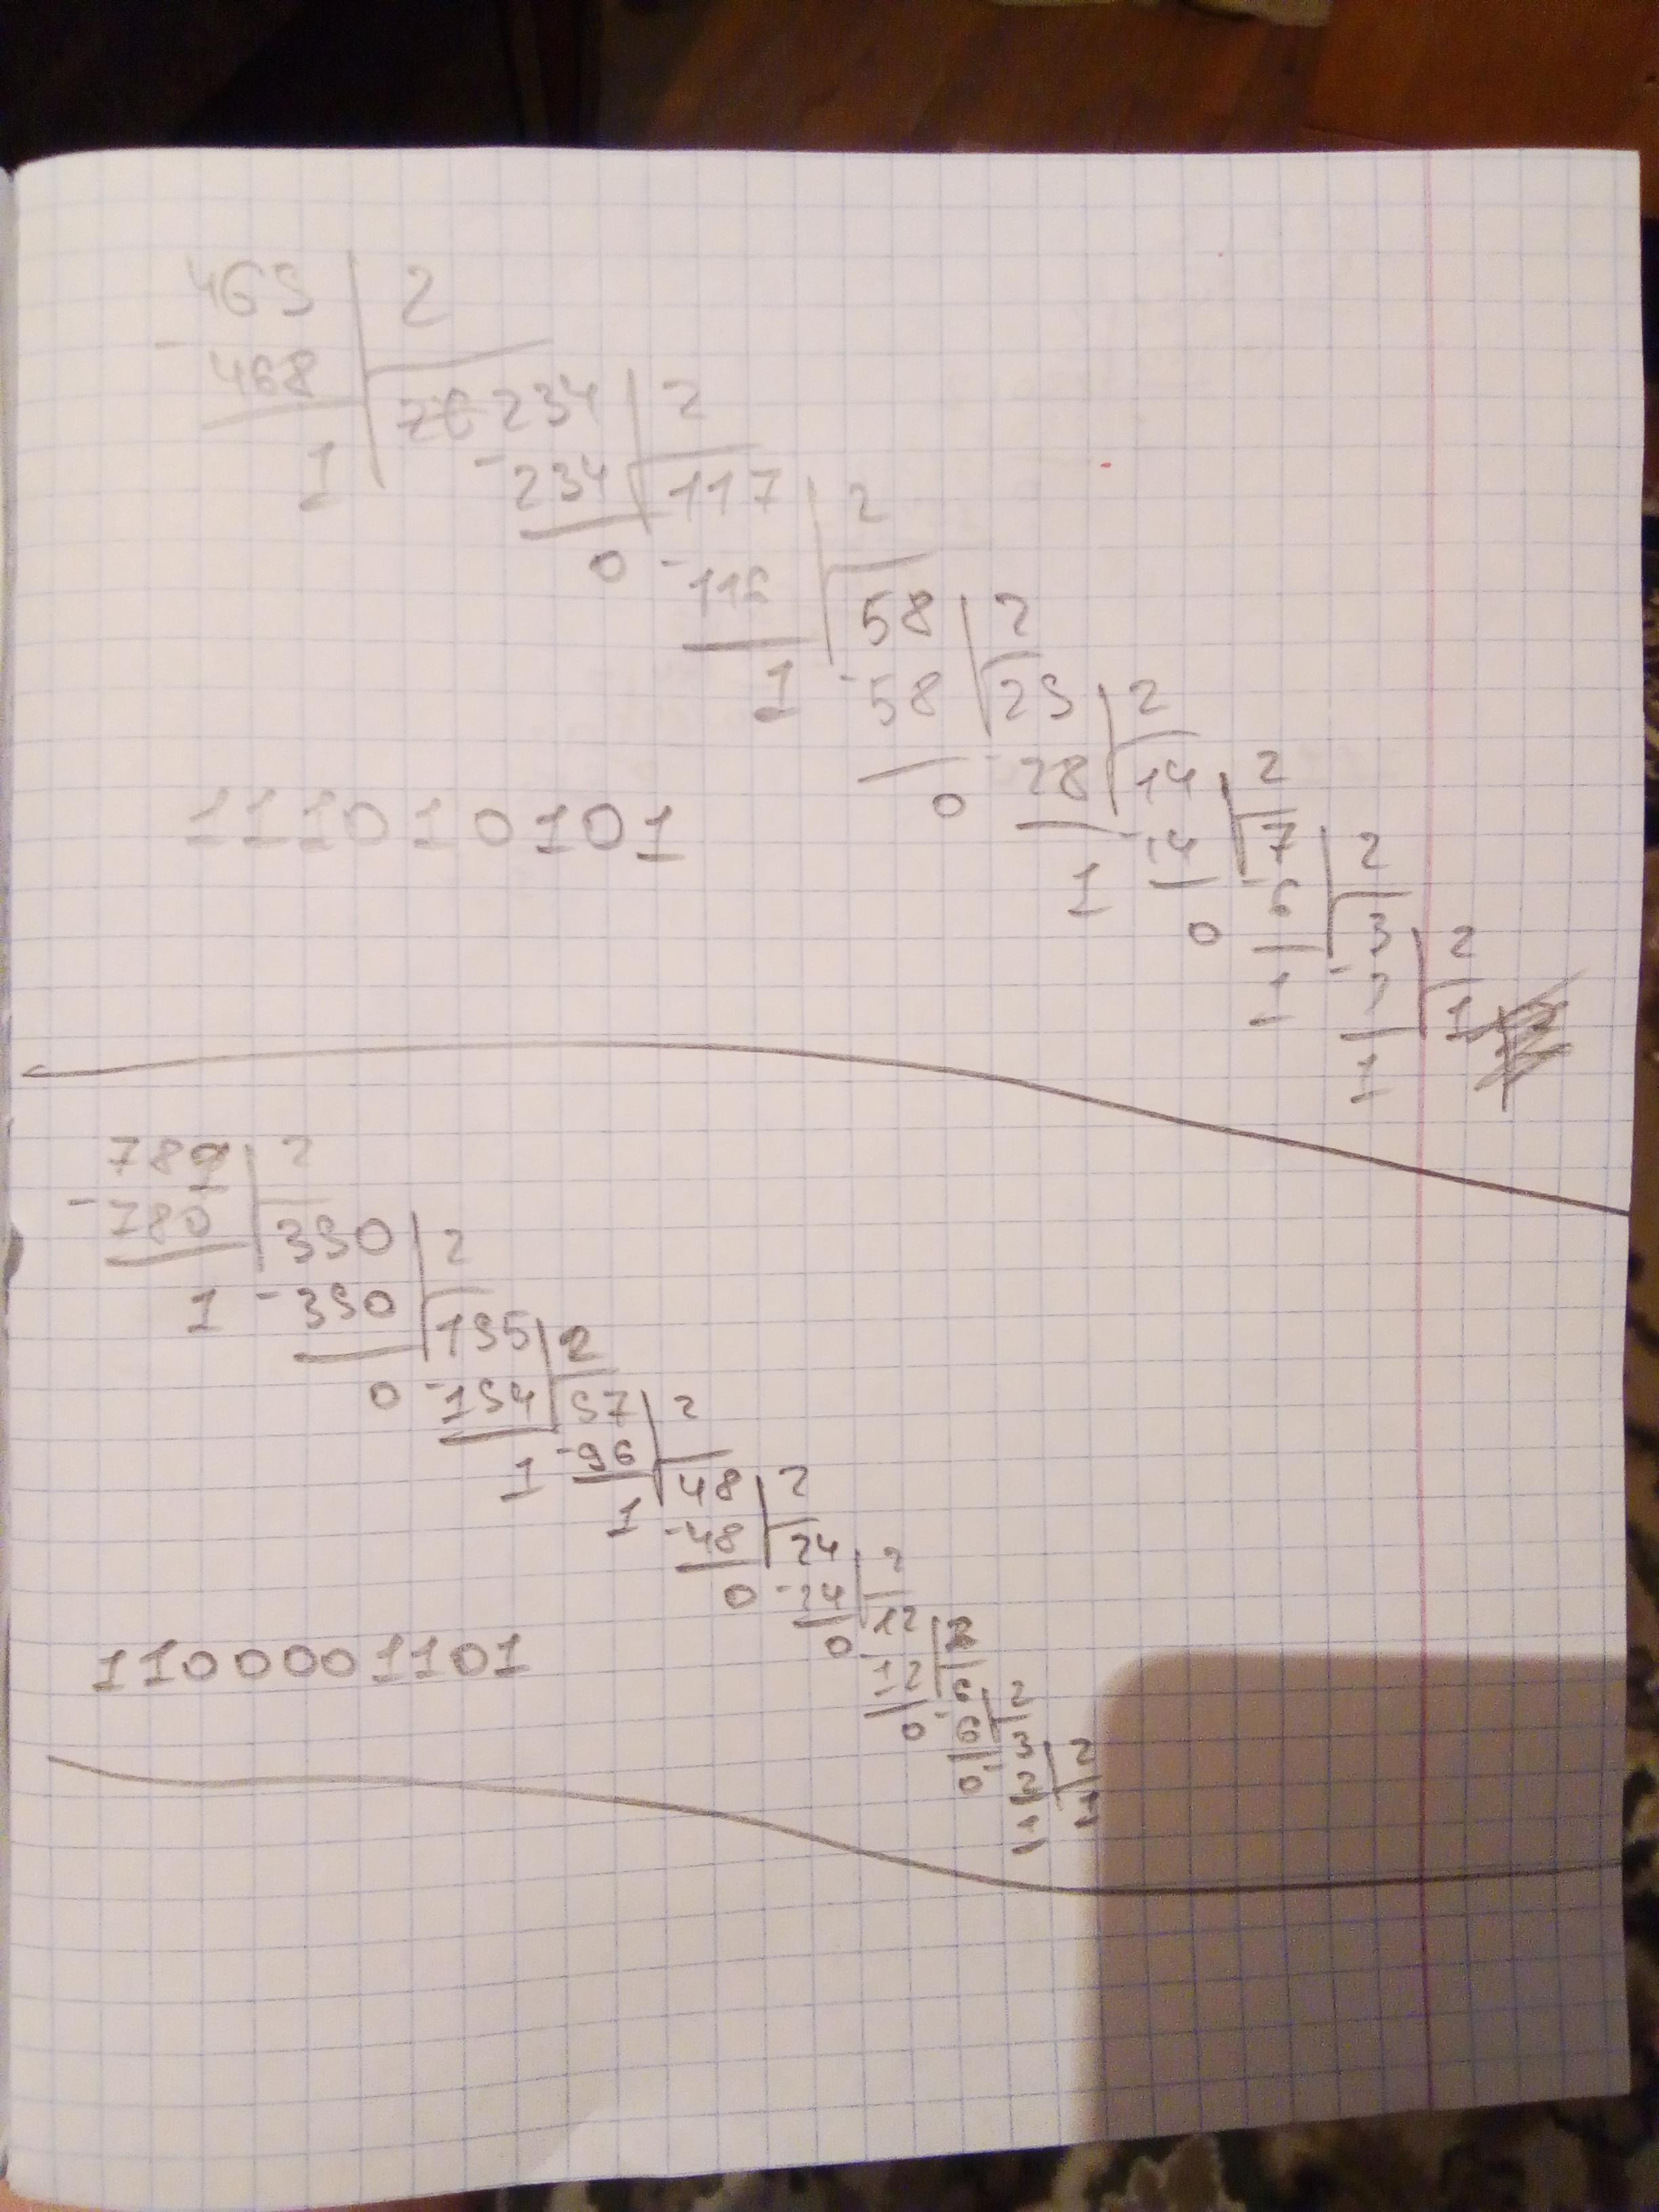 469 2
- 468 234 2
1 - 234 117 2
0 - 116 58 2
1 - 58 29 2
0 - 28 14 2
1 - 14 7 2
0 - 6 3 2
1 - 2 1
1
111010101
781 2
- 780 390 2
1 - 390 195 2
0 - 194 97 2
1 - 96 48 2
1 - 48 24 2
0 - 24 12 2
0 - 12 6 2
0 - 6 3 2
0 - 2 1
1
1100001101